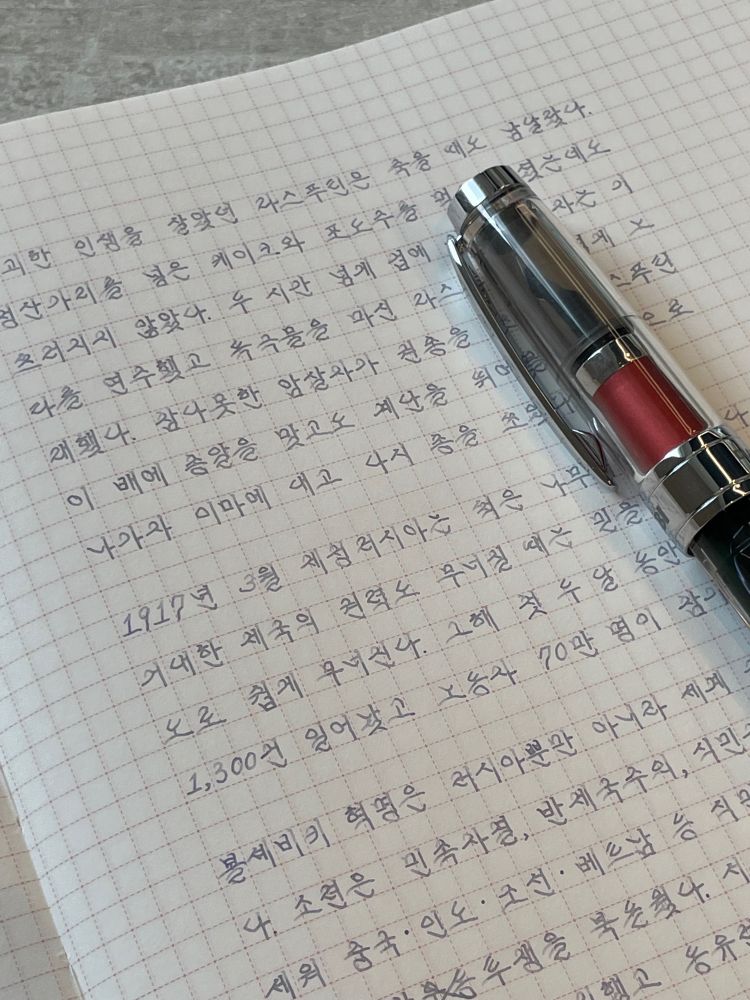 괴한 인생을 살았던 라스푸틴은 죽을 때도 남달랐다.
청산가리를 넣은 케이크와 포도주를 먹 였는데도
쓰러지지 않았다. 두 시간 넘게 겁에 라는 이
다를 연주했고 독극물을 마신 라스 에게 노
래했다. 참다못한 암살자가 권총을 스푸틴
이 배에 총알을 맞고도 계단을 뛰어 으로
나가자 이마에 대고 다시 총을 쏘았다
1917년 3월 제정러시아는 썩은 나무
거대한 제국의 권력도 무너질 때는 믿을
도로 쉽게 무너진다. 그해 첫 두 달 동안
1,300건 일어났고 노동자 70만 명이 참가
볼셰비키 혁명은 러시아뿐만 아니라 세계
다. 조선은 민족자결, 반제국주의, 식민
세워 중국·인도·조선·베트남 등 식민
투쟁을 북돋웠다.
했고